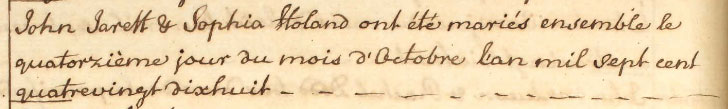 John Jarett & Sophia Holand ont été mariés ensemble le
quatorzième jour du mois d'Octobre l'an mil sept cent
quatrevingt dixhuit